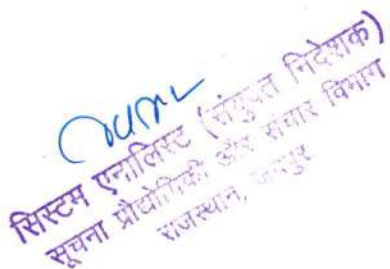 सिस्टम एनालिस्ट (संयुक्त निदेशक)
सूचना प्रौद्योगिकी और संचार विभाग
राजस्थान, जयपुर